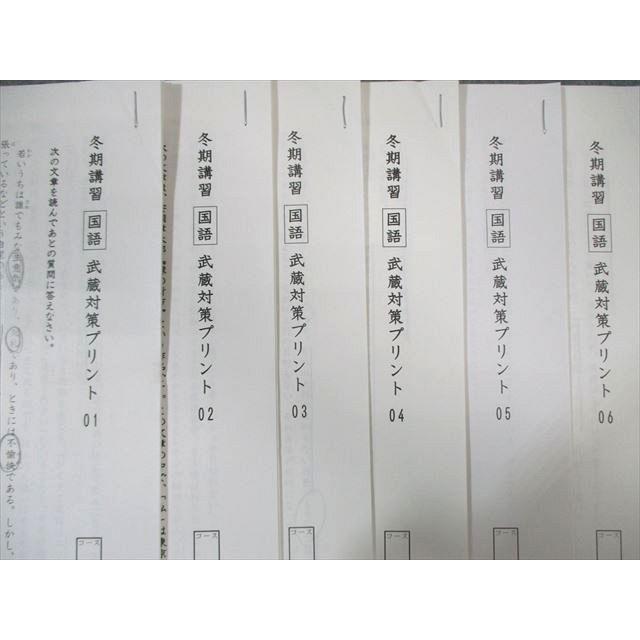 冬期講習 国語 武蔵対策プリント 01
コース
次の文章を読んであとの質問に答えなさい。
若いうちは誰でもみな生意気であり、
であり、ときには不愉快である。しかし、
張っているなどという
冬期講習 国語 武蔵対策プリント 02
コース
冬期講習 国語 武蔵対策プリント 03
コース
冬期講習 国語 武蔵対策プリント 04
コース
冬期講習 国語 武蔵対策プリント 05
コース
冬期講習 国語 武蔵対策プリント 06
コース